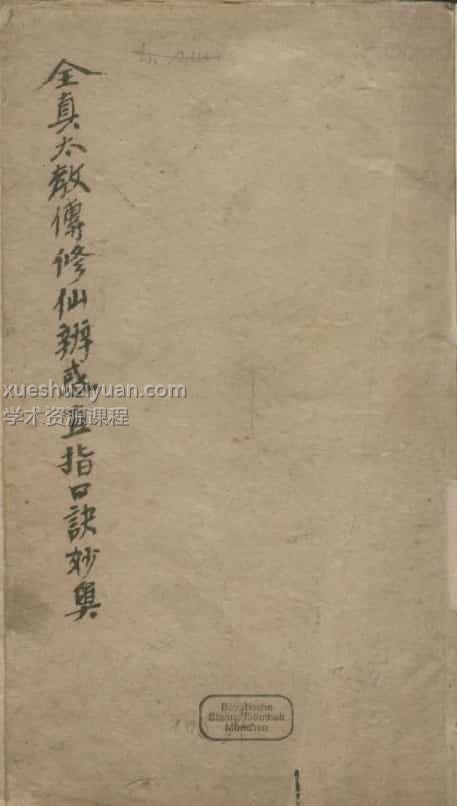 全真太教傳修仙辨惑直指口訣妙奧
xueshuziyuan.com
学术资源课程
Bayerische
Staatsbibliothek
München